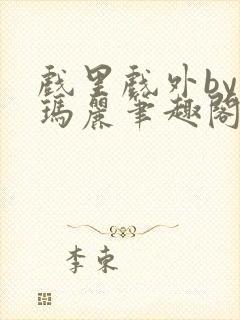 戲里戲外by
瑪麗筆趣閣
李東